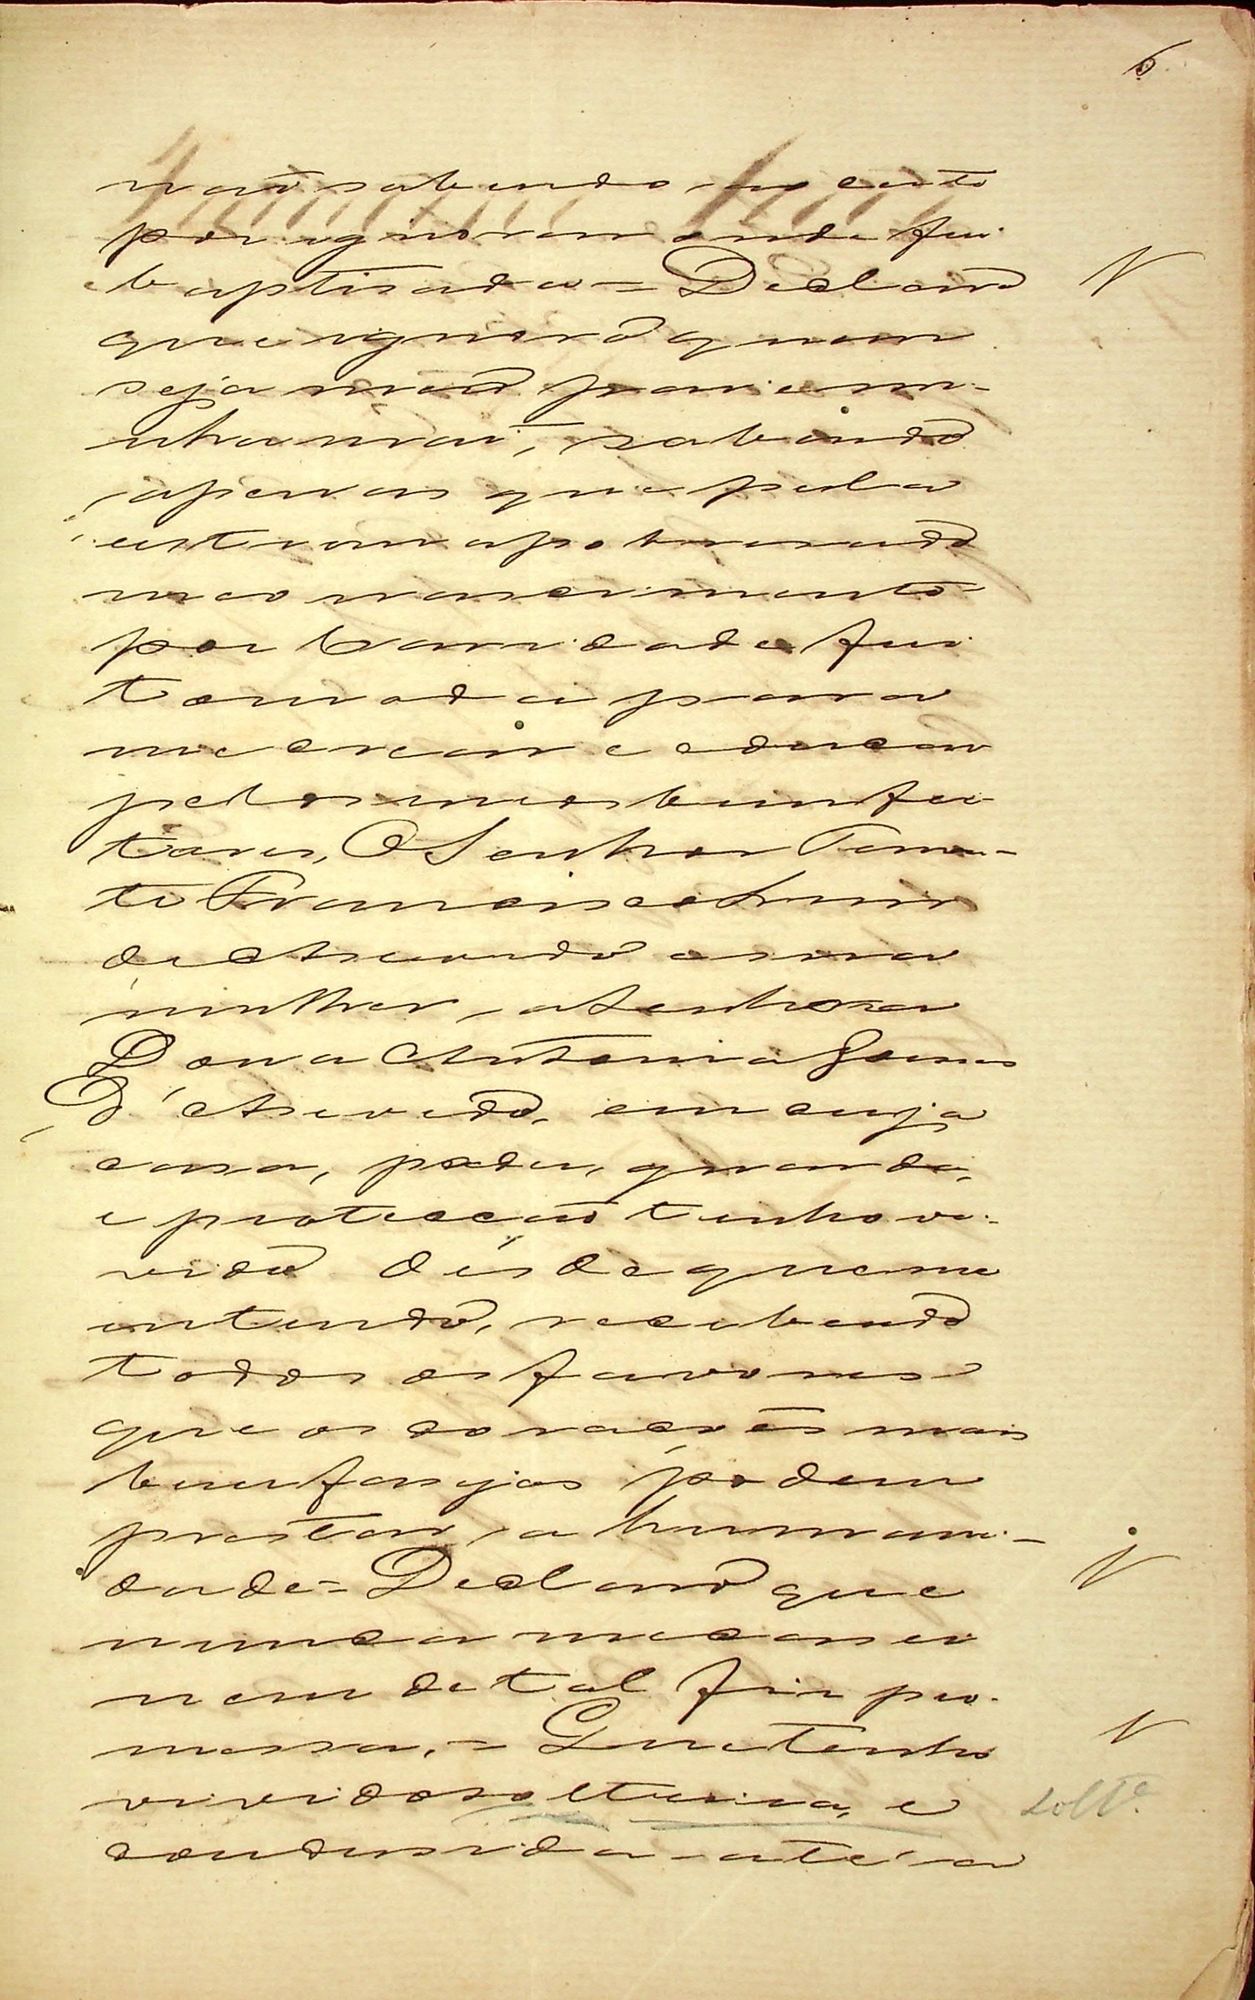 6
não sabendo ao certo
por ignorar onde fui
baptisada = Declaro
que ignoro quem
seja meu pai e mi-
nha mai, sabendo
apenas que pela
extrema pobresa do
meo nascimento
por Caridade fui
tomada para
me crear e educar
pelos meos bemfei-
tores, O Senhor Tenen-
te Francisco Luis
de Asevedo e sua
mulher, a Senhora
Dona Antonia Gomes
D'Asevedo, em cuja
casa, poder, guarda,
e protecção tenho vi-
vido désde que me
entendo, recebendo
todos os favores
que os corações mais
bemfasejos pódem
prestar a humani-
dade = Declaro que
nunca me casei
nem de tal fiz pro-
messa, = Que tenho
vivido solteira, e
Soltª
condusida até a